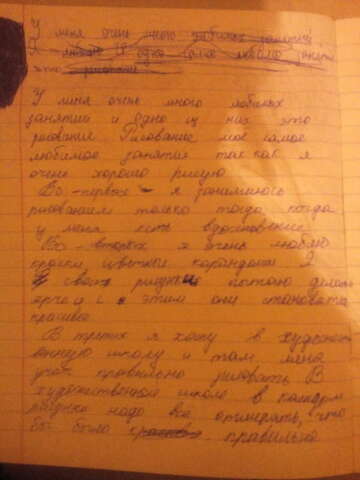 У меня очень много любимых занятий.
Я люблю и одно самое люблю
это рисование.
У меня очень много любимых
занятий и одно из них это
рисование. Рисование мое самое
любимое занятия так как я
очень хорошо рисую.
Во-первых - я занимаюсь
рисованием только тогда когда
у меня есть вдохновение.
Во-вторых я очень люблю
краски цветные карандаши. Я
свои рисунки пытаю делать
ярче и с этим они становятся
красивее.
В третих я хожу в художест
венную школу и там меня
учат правильно рисовать. В
художественной школе в каждом
рисунке надо все отмерять, что
бы было красиво. правильно